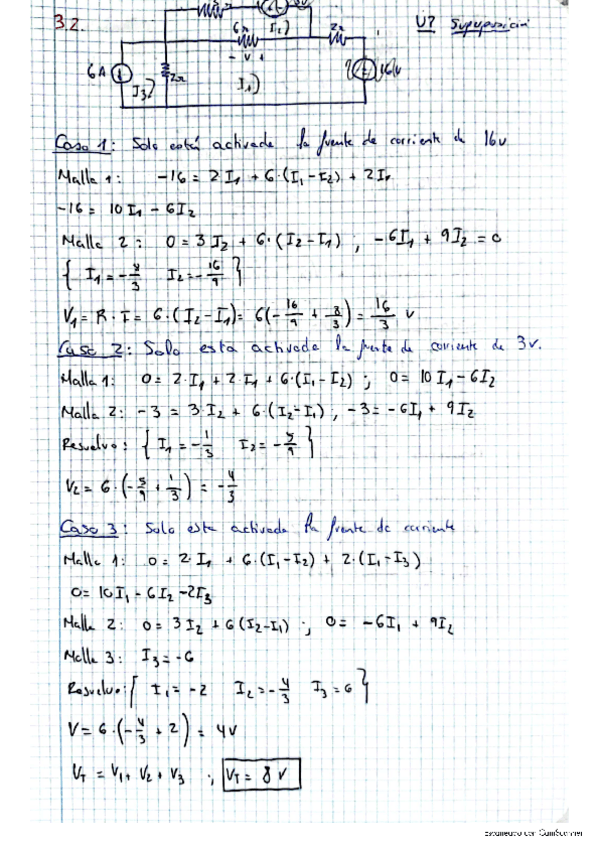 3.2.
U7 Superposición
6Ω
I2)
2Ω
- V +
6A
I3)
2Ω
I1)
16V
Caso 1: Solo está activada la fuente de corriente de 16v
Malla 1: -16 = 2I1 + 6·(I1-I2) + 2I1
-16 = 10I1 - 6I2
Malla 2: 0 = 3I2 + 6·(I2-I1) ; -6I1 + 9I2 = 0
{ I1 = -8/3 I2 = -16/9 }
V1 = R·I = 6·(I2-I1) = 6(-16/9 + 8/3) = 16/3 v
Caso 2: Solo esta activada la fuente de corriente de 3v.
Malla 1: 0 = 2·I1 + 2·I1 + 6·(I1-I2) ; 0 = 10I1 - 6I2
Malla 2: -3 = 3·I2 + 6·(I2-I1) , -3 = -6I1 + 9I2
Resuelvo: { I1 = -1/3 I2 = -5/9 }
V2 = 6·(-5/9 + 1/3) = -4/3
Caso 3: Solo esta activada la fuente de corriente
Malla 1: 0 = 2·I1 + 6·(I1-I2) + 2·(I1-I3)
0 = 10I1 - 6I2 - 2I3
Malla 2: 0 = 3I2 + 6(I2-I1) ; 0 = -6I1 + 9I2
Malla 3: I3 = -6
Resuelvo: { I1 = -2 I2 = -4/3 I3 = 6 }
V = 6·(-4/3 + 2) = 4V
VT = V1 + V2 + V3 ; VT = 8 V
Escaneado con CamScanner